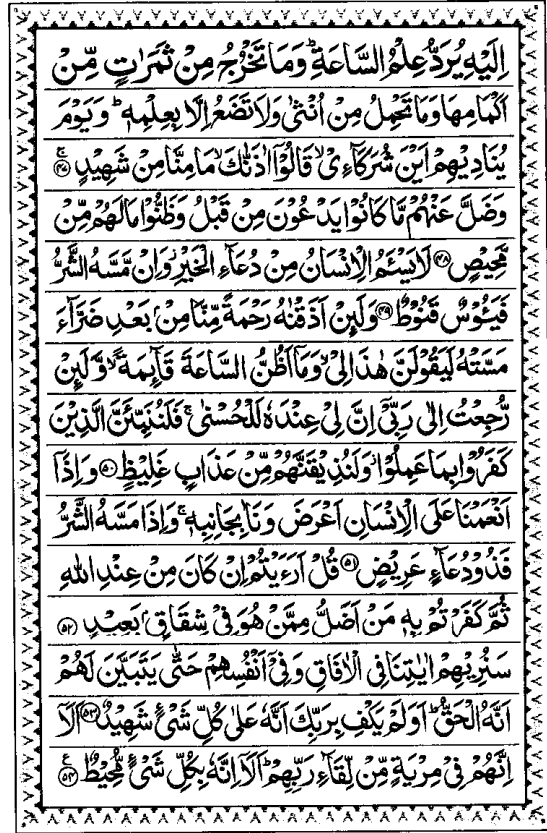 اِلَيْهِ يُرَدُّ عِلْمُ السَّاعَةِ ؕ وَمَا تَخْرُجُ مِنْ ثَمَرٰتٍ مِّنْ
اَكْمَامِهَا وَمَا تَحْمِلُ مِنْ اُنْثٰى وَلَا تَضَعُ اِلَّا بِعِلْمِهٖ ؕ وَيَوْمَ
يُنَادِيْهِمْ اَيْنَ شُرَكَآءِىْ ۙ قَالُوْۤا اٰذَنّٰكَ ۙ مَا مِنَّا مِنْ شَهِيْدٍ ۚ ﴿۴۷﴾
وَضَلَّ عَنْهُمْ مَّا كَانُوْا يَدْعُوْنَ مِنْ قَبْلُ وَظَنُّوْا مَا لَهُمْ مِّنْ
مَّحِيْصٍ ﴿۴۸﴾ لَا يَسْـَٔمُ الْاِنْسَانُ مِنْ دُعَآءِ الْخَيْرِ ۫ وَاِنْ مَّسَّهُ الشَّرُّ
فَيَـُٔوْسٌ قَنُوْطٌ ﴿۴۹﴾ وَلَئِنْ اَذَقْنٰهُ رَحْمَةً مِّنَّا مِنْۢ بَعْدِ ضَرَّآءَ
مَسَّتْهُ لَيَقُوْلَنَّ هٰذَا لِىْ ۙ وَمَاۤ اَظُنُّ السَّاعَةَ قَآئِمَةً ۙ وَّلَئِنْ
رُّجِعْتُ اِلٰى رَبِّىْۤ اِنَّ لِىْ عِنْدَهٗ لَلْحُسْنٰى ۚ فَلَنُنَبِّئَنَّ الَّذِيْنَ
كَفَرُوْا بِمَا عَمِلُوْا ۫ وَلَنُذِيْقَنَّهُمْ مِّنْ عَذَابٍ غَلِيْظٍ ﴿۵۰﴾ وَاِذَاۤ
اَنْعَمْنَا عَلَى الْاِنْسَانِ اَعْرَضَ وَنَاٰ بِجَانِبِهٖ ۚ وَاِذَا مَسَّهُ الشَّرُّ
فَذُوْ دُعَآءٍ عَرِيْضٍ ﴿۵۱﴾ قُلْ اَرَءَيْتُمْ اِنْ كَانَ مِنْ عِنْدِ اللّٰهِ
ثُمَّ كَفَرْتُمْ بِهٖ مَنْ اَضَلُّ مِمَّنْ هُوَ فِىْ شِقَاقٍۭ بَعِيْدٍ ﴿۵۲﴾
سَنُرِيْهِمْ اٰيٰتِنَا فِى الْاٰفَاقِ وَفِىْۤ اَنْفُسِهِمْ حَتّٰى يَتَبَيَّنَ لَهُمْ
اَنَّهُ الْحَقُّ ؕ اَوَلَمْ يَكْفِ بِرَبِّكَ اَنَّهٗ عَلٰى كُلِّ شَىْءٍ شَهِيْدٌ ﴿۵۳﴾ اَلَاۤ
اِنَّهُمْ فِىْ مِرْيَةٍ مِّنْ لِّقَآءِ رَبِّهِمْ ؕ اَلَاۤ اِنَّهٗ بِكُلِّ شَىْءٍ مُّحِيْطٌ ﴿۵۴﴾ ع